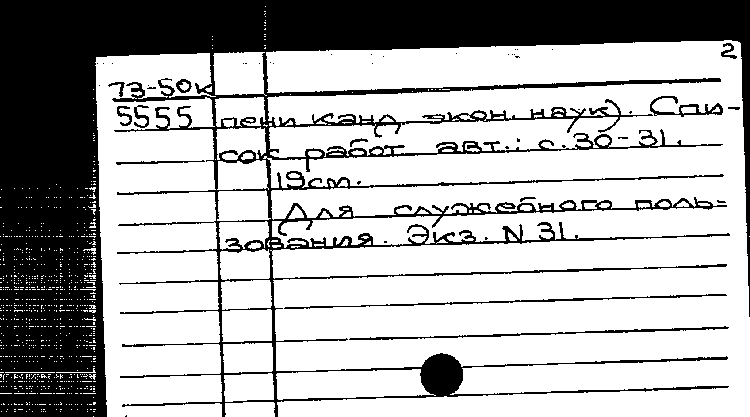 2
73-50к
5555 пени канд. экон. наук). Спи-
сок работ авт.: с. 30-31.
19см.
Для служебного поль=
зования. Экз. N 31.